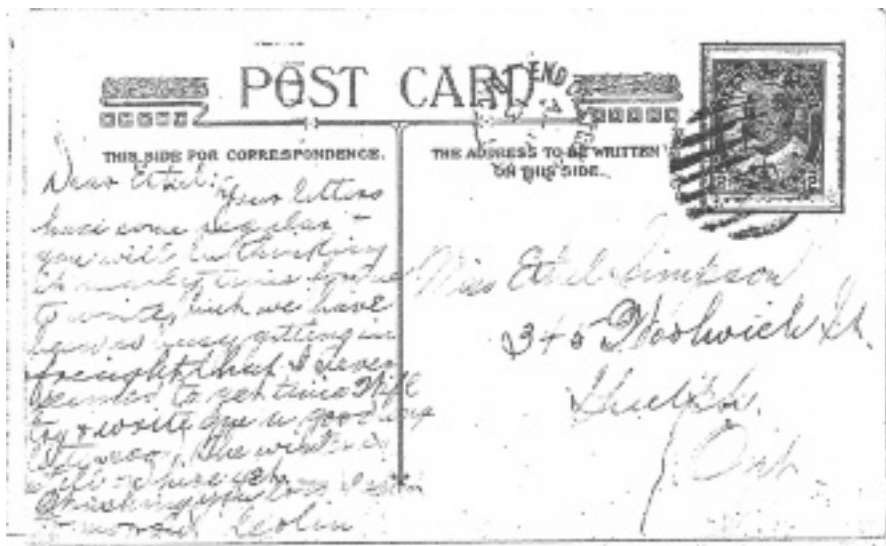 POST CARD
THIS SIDE FOR CORRESPONDENCE.
THE ADDRESS TO BE WRITTEN
ON THIS SIDE.
Dear Ethel:- Your letters
have come regular -
you will be thinking
it nearly time for me
to write, but we have
been so busy getting in
freight that I never
seemed to get time. Will
try & write you a good long
the winter is
still here
Wishing you
Miss Ethel Simpson
345 Woolwich St.
Guelph,
Ont
2 2